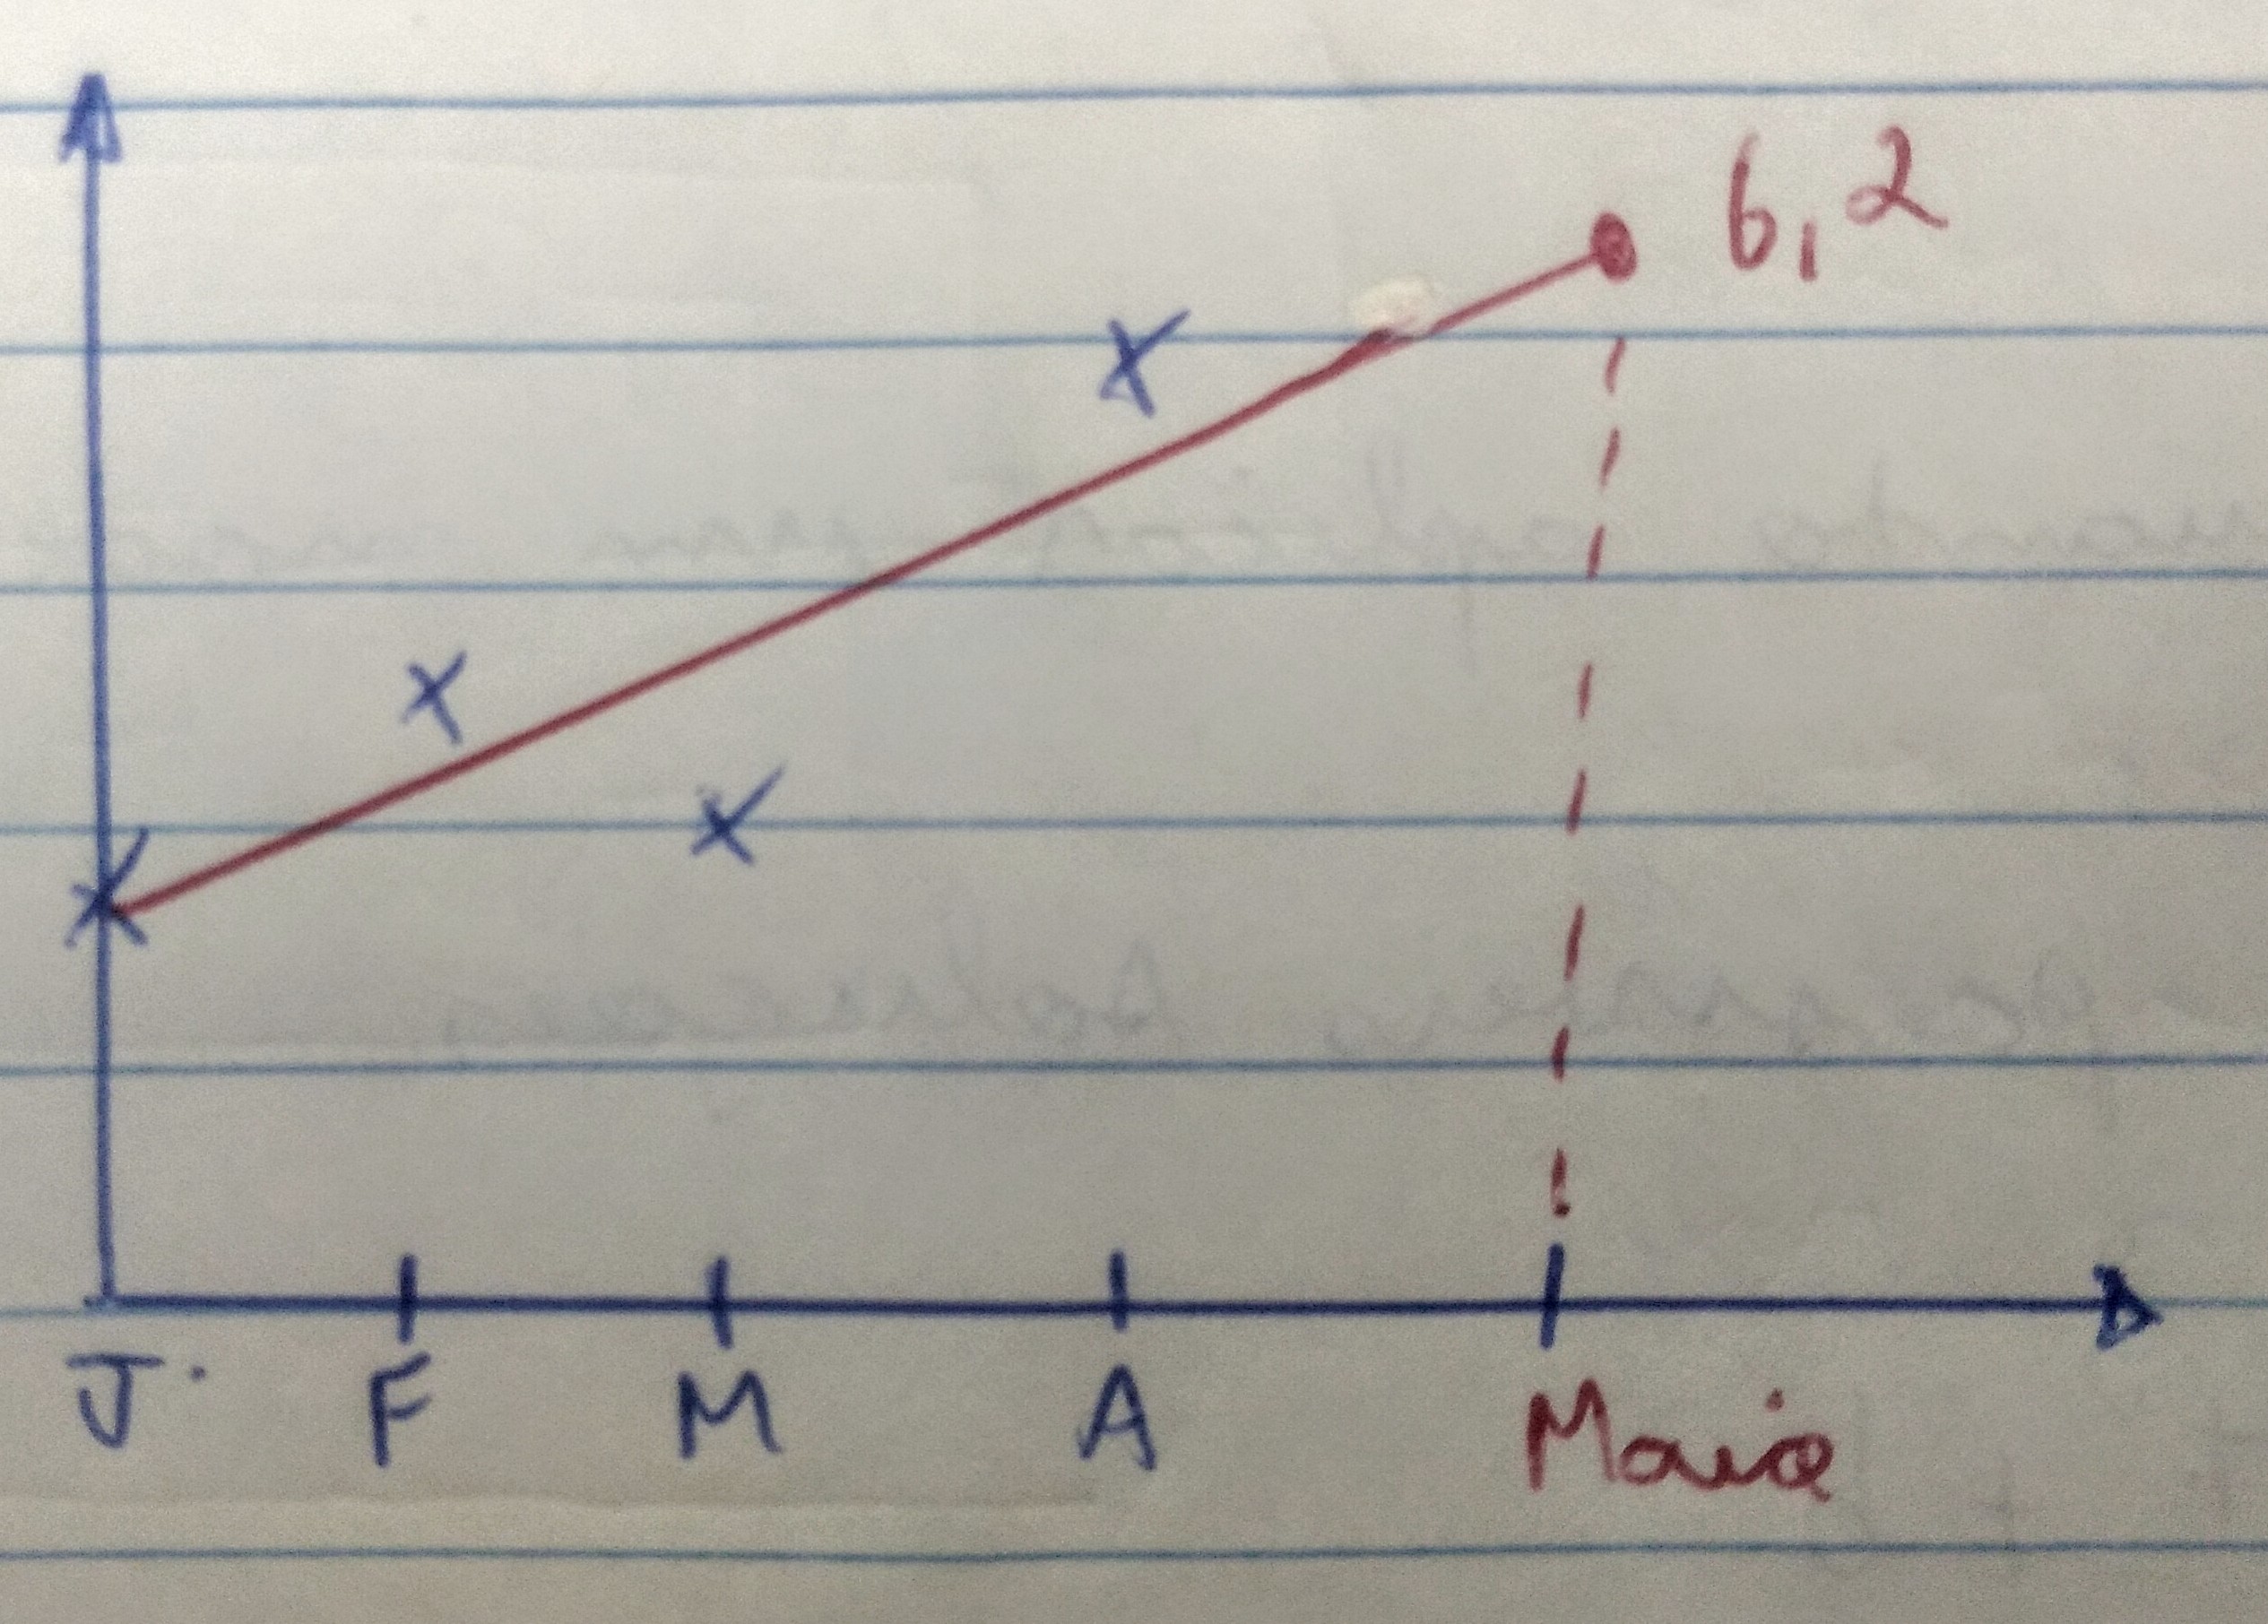 6,2
J F M A Maio